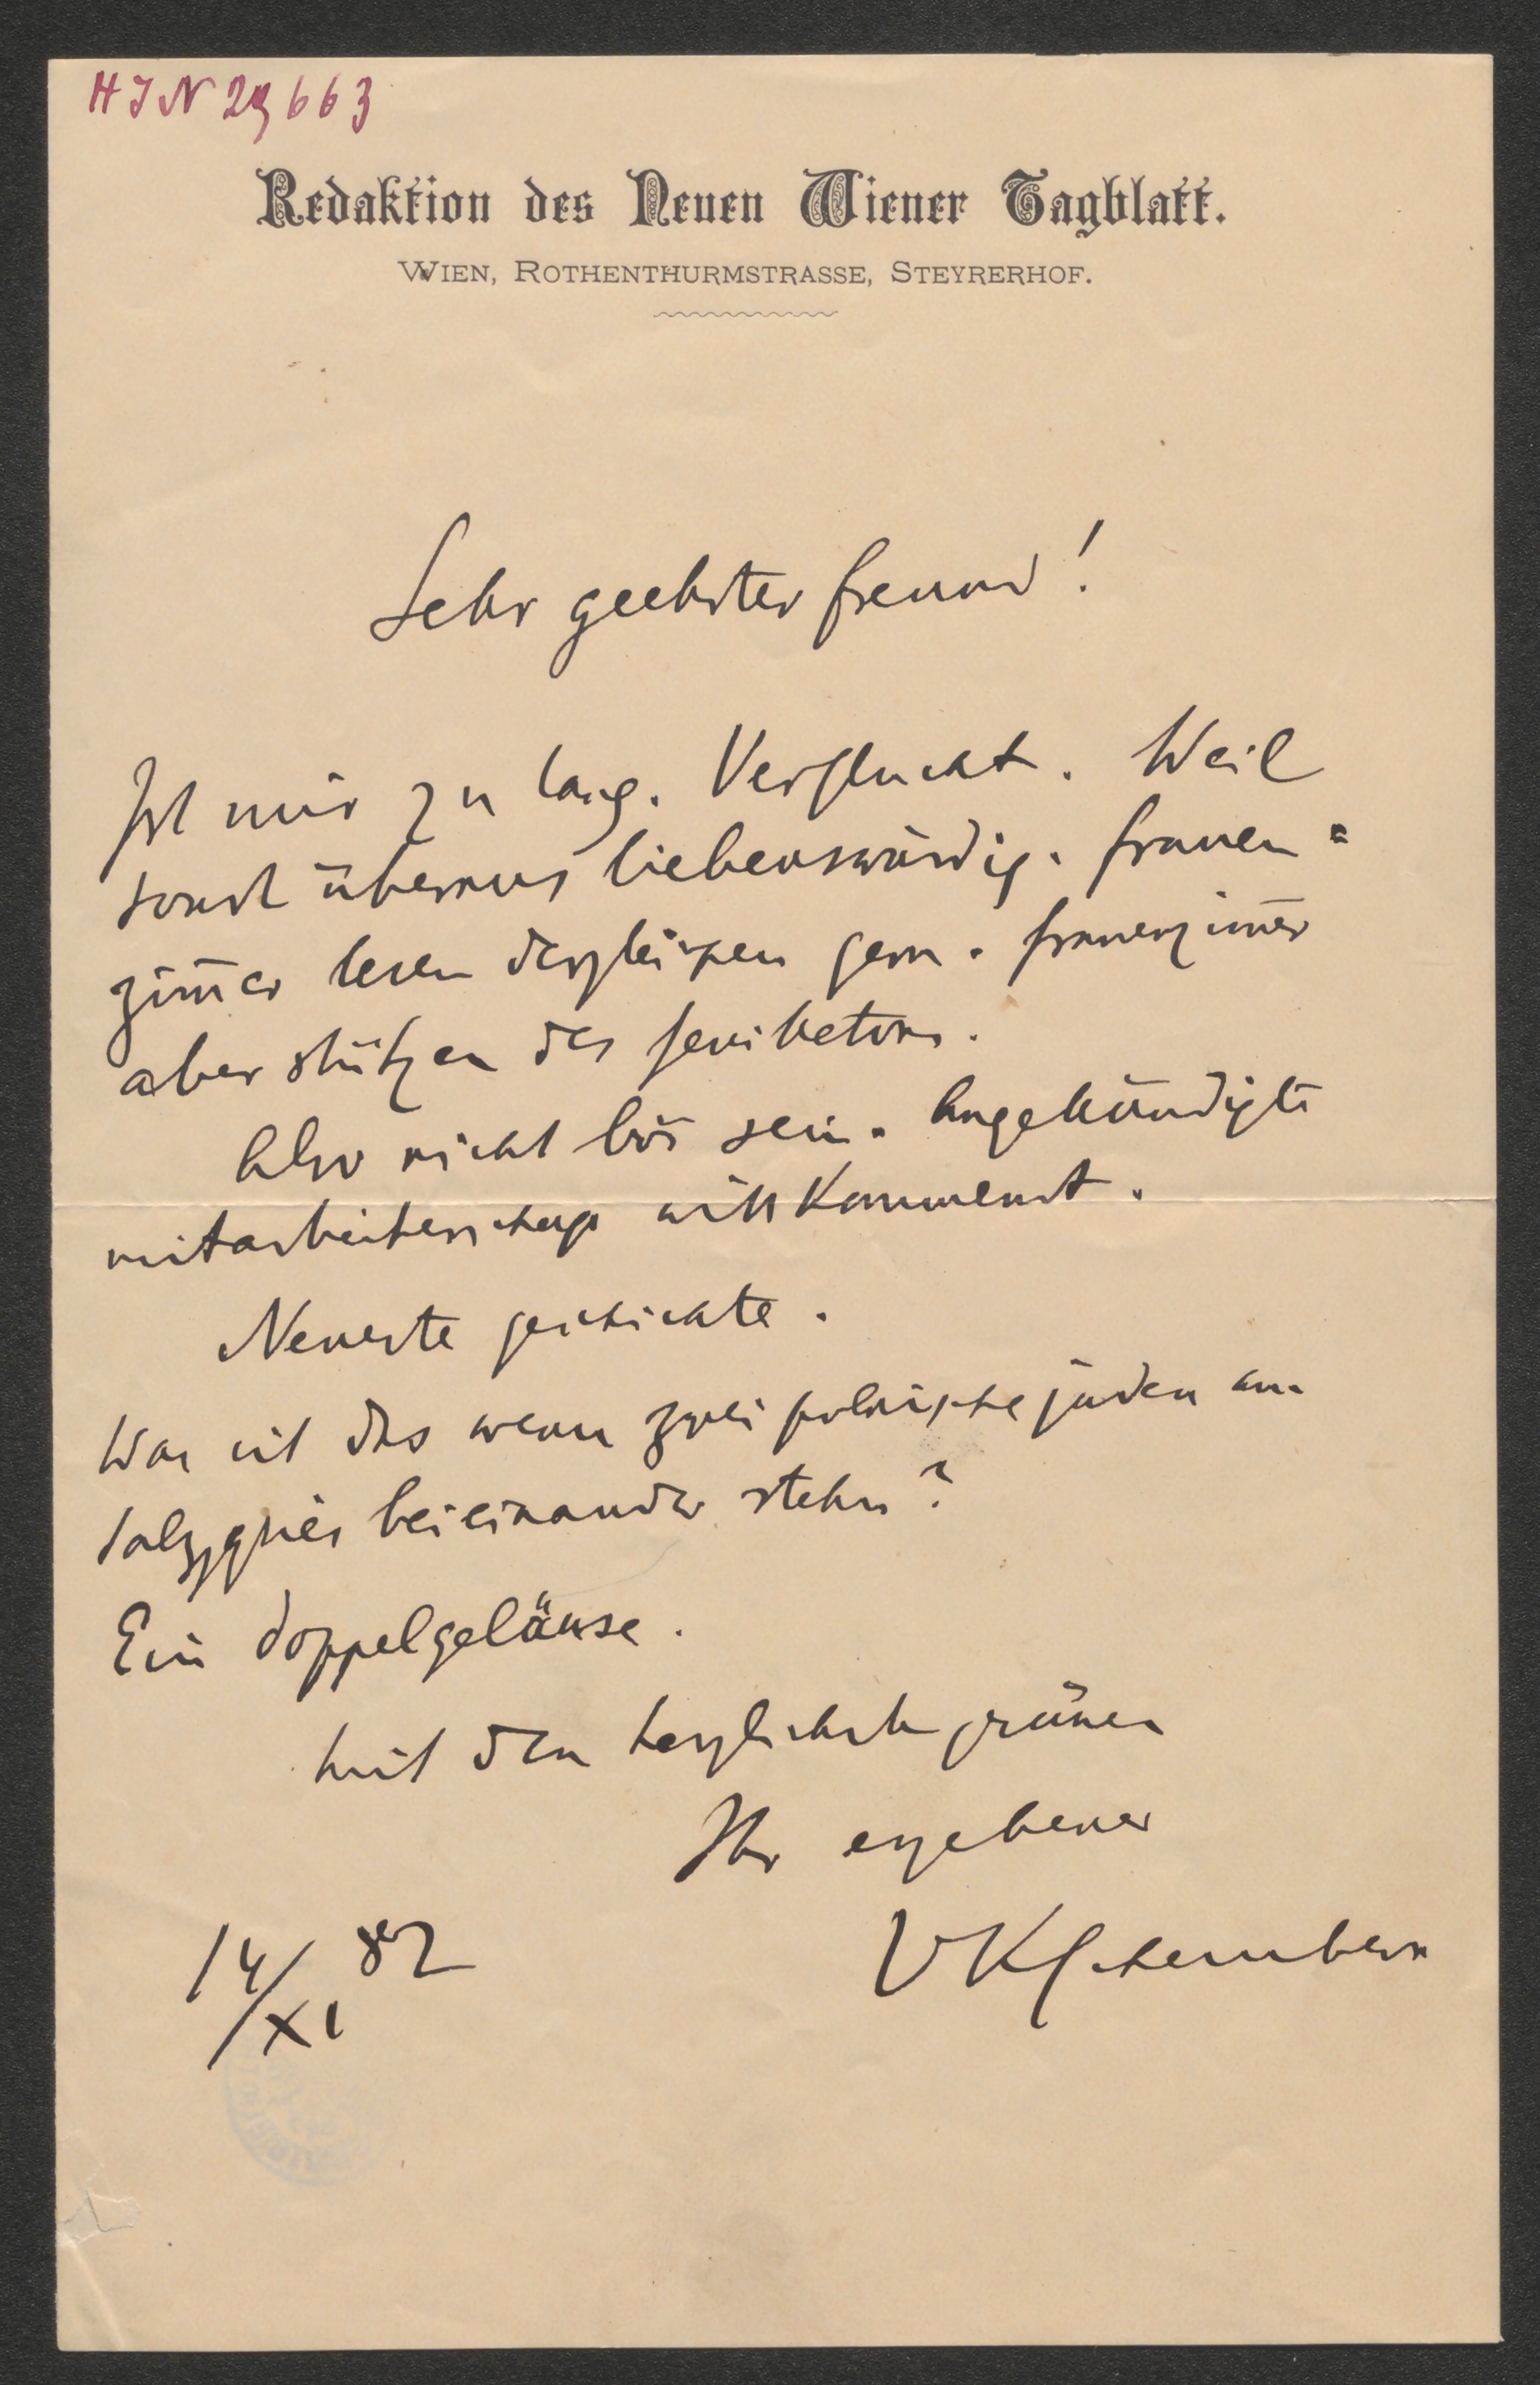 HJN 29663
Redaktion des Neuen Wiener Tagblatt.
WIEN, ROTHENTHURMSTRASSE, STEYRERHOF.
Sehr geehrter freund!
Ist mir zu lang. Verflucht. Weil
sonst überaus liebenswürdig. frauen=
zim̅er lesen dergleichen gern. frauenzim̅er
aber stützen des feuilletons.
Also nicht bös sein. Angekündigte
mitarbeiterschaft willkommenst.
Neueste geschichte.
Was ist das wenn zwei polnische juden am
salzgries beieinander stehn?
Ein doppelgeläuse.
mit den herzlichsten grüssen
Ihr ergebener
VKSchembera
14/XI 82